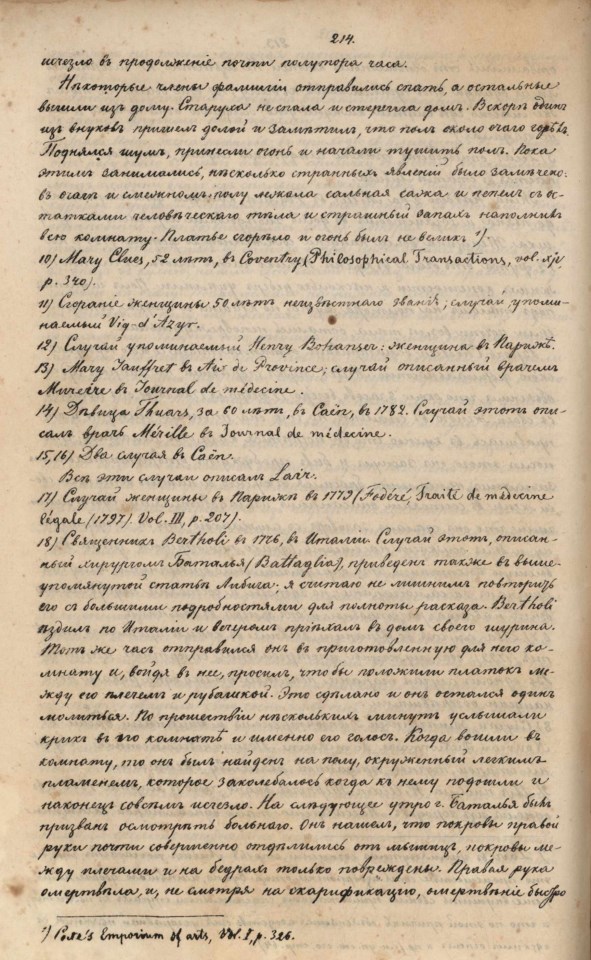 214.
исчезло въ продолженіе почти полутора часа.
Нѣкоторые члены фамиліи отправились спать, а остальные
вышли изъ дому. Старуха не спала и стерегла домъ. Вскорѣ одинъ
изъ внуковъ пришелъ домой и замѣтилъ, что полъ около очага горѣлъ.
Поднялся шумъ, принесли огонь и начали тушить полъ. Пока
этимъ занимались, нѣсколько странныхъ явленій было замѣчено:
въ очагѣ и смежномъ полу лежала сальная сажа и пепелъ съ ос-
татками человѣческаго тѣла и страшный запахъ наполнялъ
всю комнату. Платье сгорѣло и огонь былъ не великъ ¹).
10) Mary Clues, 52 лѣтъ, въ Coventry (Philosophical Transactions, vol.
p. 340).
11) Сгораніе женщины 50 лѣтъ неизвѣстнаго званія; случай, упоми-
наемый Viq-d'Azyr.
12) Случай упоминаемый Henry Bohanser: женщина въ Парижѣ.
13) Mary Jauffret въ Aix de Province; случай описанный врачемъ
Murerre въ Journal de médecine.
14) Дѣвица Thuars, за 60 лѣтъ, въ Caën, въ 1782. Случай этотъ опи-
салъ врачъ Mérille въ Journal de médecine.
15,16) Два случая въ Caën.
Всѣ эти случаи описалъ Lair.
17) Случай женщины въ Парижѣ въ 1779 (Fodéré, Traité de médecine
légale (1797). Vol. III, p. 207).
18) Священникъ Bertholi въ 1776, въ Италіи. Случай этотъ, описан-
ный хирургомъ Баталья (Battaglia), приведенъ также въ выше-
упомянутой статьѣ Либиха; я считаю не лишнимъ повторить
его съ большими подробностями для полноты расказа. Bertholi
ѣздилъ по Италіи и вечеромъ пріѣхалъ въ домъ своего шурина.
Тотъ же часъ отправился онъ въ приготовленную для него ко-
мнату и, войдя въ нее, просилъ, чтобы положили платокъ ме-
жду его плечемъ и рубашкой. Это сдѣлано и онъ остался одинъ
молиться. По прошествіи нѣсколькихъ минутъ услышали
крикъ въ его комнатѣ и именно его голосъ. Когда вошли въ
комнату, то онъ былъ найденъ на полу, окруженный легкимъ
пламенемъ, которое заколебалось когда къ нему подошли и
наконецъ совсѣмъ исчезло. На слѣдующее утро г. Баталья былъ
призванъ осмотрѣть больнаго. Онъ нашелъ, что покровы правой
руки почти совершенно отдѣлились отъ мышицъ, покровы ме-
жду плечами и на бедрахъ только повреждены. Правая рука
омертвѣла, и, не смотря на скарификацію, омертвѣніе быстро
¹) Emporium of arts, Vol. I, p. 326.